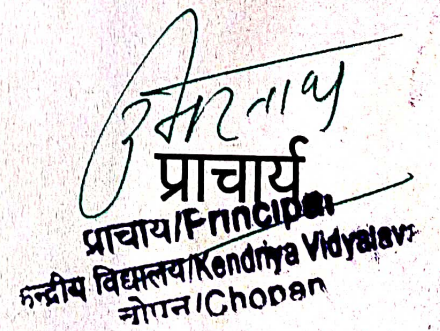 प्राचार्य
प्राचाय/Principal
केन्द्रीय विद्यालय/Kendriya Vidyalaya
चोपन/Chopan